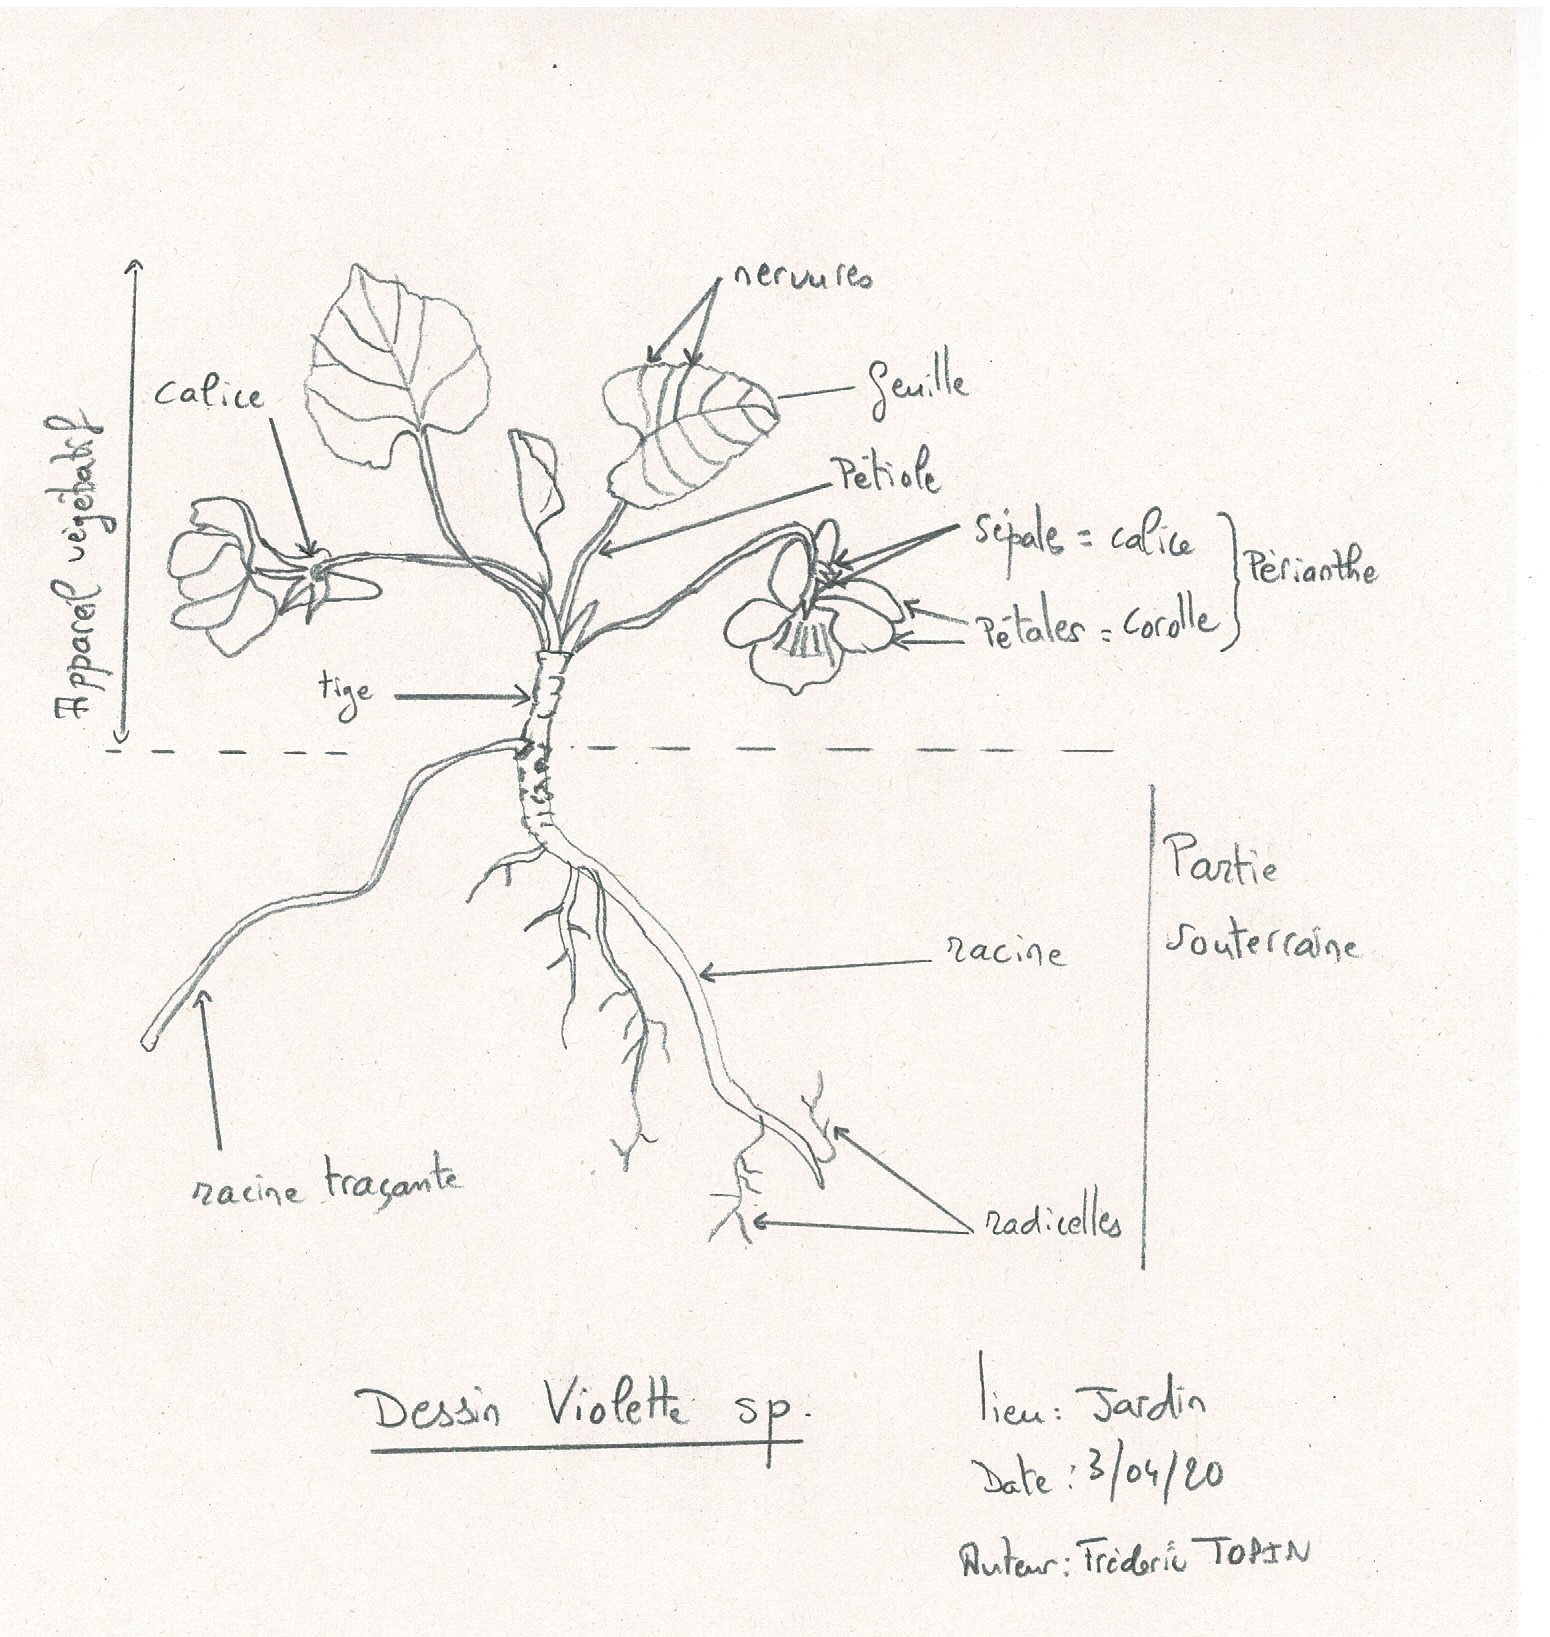 nervures
feuille
calice
Pétiole
Sépales = calice
Périanthe
Pétales = corolle
Appareil végétatif
tige
Partie
souterraine
racine
racine traçante
radicelles
Dessin Violette sp.
lieu: Jardin
Date: 3/04/20
Auteur: Fréderic